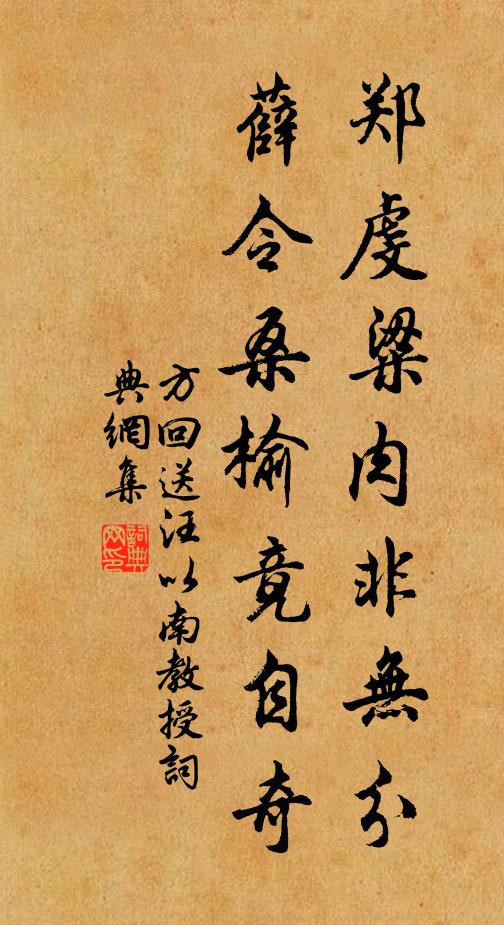 郑虔粱肉非無分
薛令桑榆竟自奇
方回送汪以南教授詞
典網集
詞典
网印